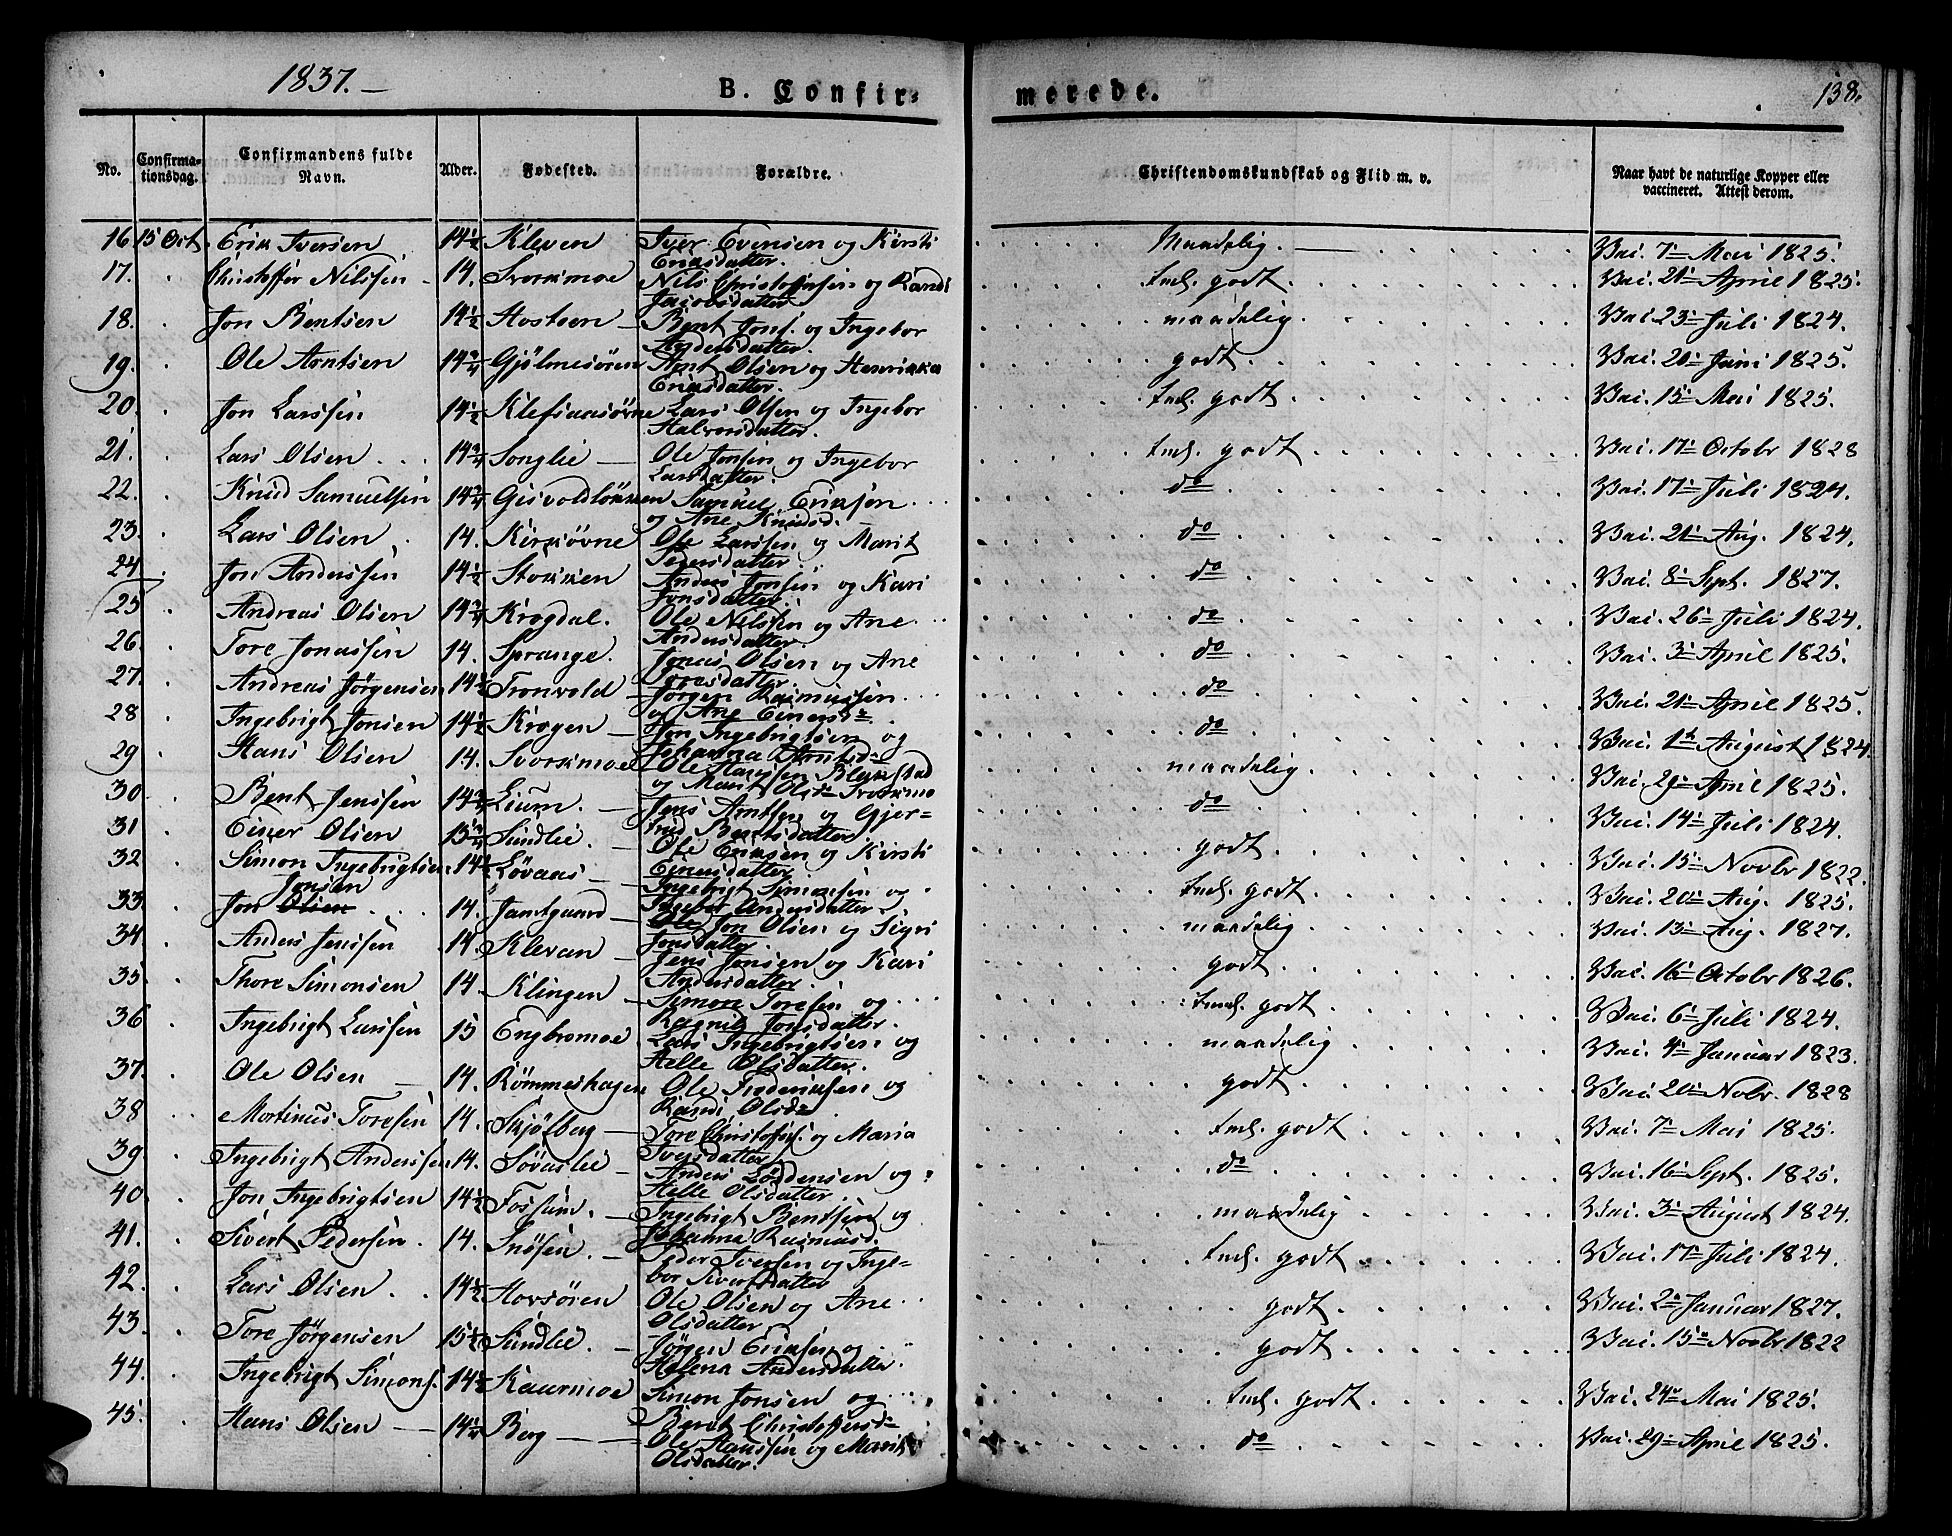 1837.-
B. Confir=
merede.
138.
No.
Confirma-
tionsdag.
Confirmandens fulde
Navn.
Alder.
Fødested.
Forældre.
Christendomskundskab og Flid m. v.
Naar havt de naturlige Kopper eller
vaccineret. Attest derom.
16 15 Oct. Erik Iversen 14½ Kleven Iver Evensen og Kirsti Eriksdatter. Maadelig. Vac. 7 Mai 1825.
17. Christoffer Nilssen 14. Svorkmoe Nils Christophersen og Randi Jacobsdatter teml. godt Vac. 21 April 1825.
18. Jon Bentsen 14½ Hostoen Bent Jons. og Ingebor Andersdatter. maadelig. Vac. 23 Juli 1824.
19. Ole Arntsen 14¾ Gjølmesøren Arnt Olsen og Henrikka Eriksdatter. godt Vac. 21 Juni 1825
20. Jon Larssen 14½ Klefsaasøvne Lars Olsen og Ingebor Halvorsdatter. teml. godt Vac. 15 Mai 1825.
21. Lars Olsen 14¾ Songlie Ole Jonsen og Ingebor Larsdatter. teml. godt Vac. 17 Octobr 1828
22. Knud Samuelsen 14¾ Gisvoldlønnen Samuel Erikson og Ane Knudsd. do Vac. 17 Juli 1824.
23. Lars Olsen 14. Kirkøvne Ole Larssen og Marit Pedersdatter. do Vac. 21 Aug. 1824.
24. Jon Anderssen 14½ Stokken Anders Jonsen og Kari Jonsdatter. do Vac. 8 Sept. 1827.
25. Andreas Olsen 14¾ Krogdal. Ole Nilssen og Ane Andersdatter. do Vac. 26 Juli 1824.
26. Tore Jonassen 14. Sprange. Jonas Olsen og Ane Toresdatter. do Vac. 3 April 1825.
27. Andreas Jørgensen 14½ Tronvold Jørgen Rasmussen og Ane Einersd. do Vac. 21 April 1825
28 Ingebrigt Jonsen 14½ Krogen Jon Ingebrigtsen og Johanna Arntsd. do Vac. 1 August 1824.
29 Hans Olsen 14. Svorkmoe Ole Hanssen Blekstad og Marit Olsd. Svorkmo maadelig. Vac. 29 April 1825.
30. Bent Jenssen 14¾ Lium. Jens Arntsen og Gjertrud Bentsdatter do Vac. 14 Juli 1824.
31. Einer Olsen 15¾ Sundlie. Ole Eriksen og Kirsti Einersdatter. godt Vac. 15 Novbr 1822.
32. Simon Ingebrigtsen 14½ Løvaas Ingebrigt Simonsen og Ingebor Andersdatter. teml. godt Vac. 20 Aug. 1825.
33. Jon Olsen Jonsen 14. Jamtgaard Ole Jon Olsen og Sigri Jonsdatter. maadelig Vac. 13 Aug. 1827.
34. Anders Jenssen 14. Klevan Jens Jonsen og Kari Andersdatter. godt Vac. 16 Octobr 1826.
35. Thore Simonsen 14. Klingen Simon Toresen og Ragnild Jonsdatter. teml. godt Vac. 6 Juli 1824.
36 Ingebrigt Larssen 15 Engbromoe Lars Ingebrigtsen og Helle Olsdatter. maadelig Vac. 4 Januar 1823.
37. Ole Olsen 14. Rømmeshagen Ole Frederiksen og Randi Olsd. godt Vac. 20 Nobr. 1828
38 Mortinus Toresen 14. Skjølberg Tore Christoffers. og Maria Iversdatter teml. godt Vac. 7 Mai 1825.
39. Ingebrigt Anderssen 14. Søvaslie Anders Loddensen og Helle Olsdatter. do Vac. 16 Sept. 1825.
40. Jon Ingebrigtsen 14½ Fossum. Ingebrigt Bentsen og Johanna Rasmusd. maadelig Vac. 3 August 1824.
41. Sivert Pedersen. 14. Snøsen. Peder Iversen og Ingebor Sivertsdatter teml. godt Vac. 17 Juli 1824.
42. Lars Olsen 14½ Hovsøren Ole Olsen og Ane Olsdatter. godt Vac. 2 Januar 1827.
43. Tore Jørgensen 15½ Sundlie. Jørgen Eriksen og Helena Andersdatter. godt Vac. 15 Novbr 1822
44. Ingebrigt Simons. 14½ Kaurmoe Simon Jonsen og Berit Christoffersd. teml. godt Vac. 24 Mai 1825.
45. Hans Olsen 14¼ Berg Ole Hanssen og Marit Olsdatter. do Vac. 29 April 1825.